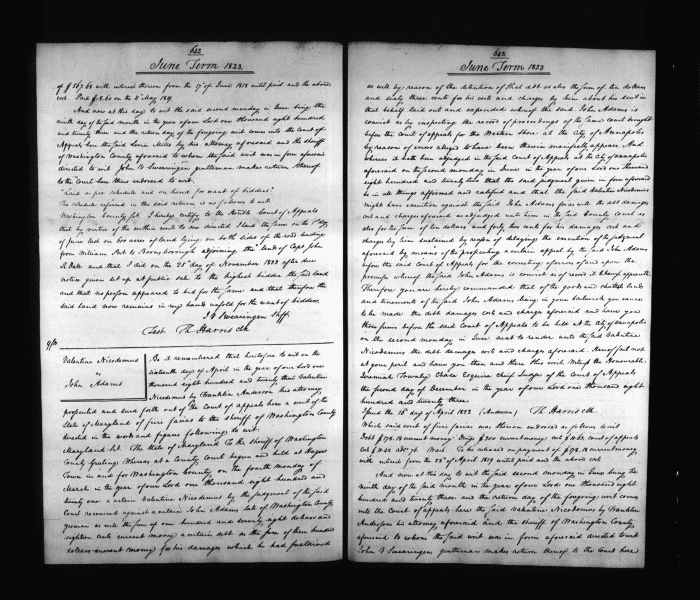 642
June Term 1823
of $167.68 with interest thereon from the 17th of June 1818 until paid and the above
cost Paid $8.60 on the 11th May 1819
And now at this day to wit the said second monday in June being the
ninth day of the said month in the year of our Lord one thousand eight hundred
and twenty three and the return day of the foregoing writ comes into the Court of
Appeals here the said Levin Mills by his attorney aforesaid and the sheriff
of Washington County aforesaid to whom the said writ was in form aforesaid
directed to wit John V Swearingen gentleman makes return thereof
to the Court here thus endorsed to wit.
"Laid as per schedule and on hand for want of bidders"
The schedule referred in the said return is as follows to wit
Washington County Sct. I hereby certify to the Honble Court of Appeals
that by virtue of the within writ to me directed I laid the same on the 1st day
of June last on 600 acres of land lying on both sides of the road leading
from William to Boonsborough adjoining the lands of Capt John
and that I did on the 25th day of November 1822 after due
notice given set up at public sale to the highest bidder the said land
and that no person appeared to bid for the same and that therefore the
said land now remains in my hands unsold for the want of bidders.
J V Swearingen Shff
Test Th Harris Clk
Valentine Nicodemus
vs
John Adams
Be it remembered that heretofore to wit on the
sixteenth day of April in the year of our Lord one
thousand eight hundred and twenty three Valentine
Nicodemus by Franklin Anderson his attorney
prosecuted and sued forth out of the Court of appeals here a writ of the
State of Maryland of fieri facias to the sheriff of Washington County
directed in the words and figures following to wit:
Maryland Sct. The State of Maryland To the sheriff of Washington
County Greeting: Whereas at a County Court begun and held at Hagers
Town in and for Washington County on the fourth monday of
March in the year of our Lord one thousand eight hundred and
twenty one a certain Valentine Nicodemus by the judgment of the said
Court recovered against a certain John Adams late of Washington County
yeoman as well the sum of one hundred and seventy eight dollars and
eighteen cents current money a certain debt as the sum of three hundred
dollars current money for his damages which he had sustained
642
June Term 1823
as well by reason of the detention of that debt as also the sum of ten dollars
and sixty three cents for his costs and charges by him about his suit in
that behalf laid out and expended whereof the said John Adams is
convict as by inspecting the record of proceedings of the same court brought
before the Court of appeals for the Western Shore at the City of Annapolis
by reason of errors alleged to have been therein manifestly appears. And
whereas it hath been adjudged in the said Court of Appeals at the City of Annapolis
aforesaid on the second monday in June in the year of our Lord one thousand
eight hundred and twenty two that the said judgment given in form aforesaid be
in all things affirmed and ratified and that the said Valentine Nicodemus
might have execution against the said John Adams for as well the debt damages
cost and charges aforesaid as adjudged unto him in the said County Court as
also for the sum of ten dollars and forty two cents for his damages cost and
charges by him sustained by reason of delaying the execution of the judgment
aforesaid by means of the prosecuting a certain appeal by the said John Adams
before the said Court of Appeals for the correcting errors of and upon the
premises whereof the said John Adams is convict as of record it thereof appeareth
Therefore you are hereby commanded that of the goods and chattels lands
and tenements of the said John Adams being in your bailiwick you cause
to be made the debt damages cost and charges aforesaid and have you
those sums before the said Court of Appeals to be held at the City of Annapolis
on the second monday in June next to render unto the said Valentine
Nicodemus the debt damages cost and charges aforesaid. Hereof fail not
at your peril and have you then and there this writ. Witness the Honorable
Jeremiah Townley Chase Esquire Chief Judge of the Court of Appeals
the second day of December in the year of our Lord one thousand eight
hundred and twenty three.
Issued the 16th day of April 1823 (Anderson) Th Harris Clk
Which said writ of fieri facias was thus endorsed as follows to wit
Debt $178.18 current money Damages $300 current money cost $10.63. Court of appeals
cost $10.42 To be released on payment of $178.18 current money
with interest from the 22d of April 1819 until paid and the above cost.
And now at this day to wit the said second monday in June being the
ninth day of the said month in the year of our Lord one thousand eight
hundred and twenty three and the return day of the foregoing writ comes
into the Court of appeals here the said Valentine Nicodemus by Franklin
Anderson his attorney aforesaid and the sheriff of Washington County
aforesaid to whom the said writ was in form aforesaid directed to wit
John V Swearingen gentleman makes return thereof to the Court here